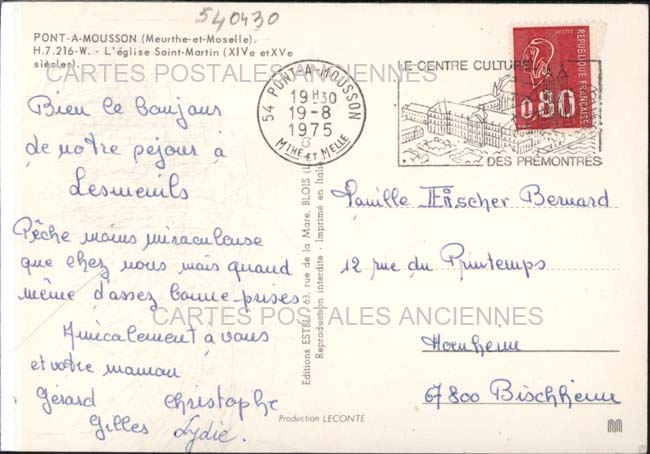 540430
PONT-A-MOUSSON (Meurthe-et-Moselle).
H.7.216-W. - L'église Saint-Martin (XIVe et XVe
siècles).
CARTES POSTALES ANCIENNES
Bien le bonjour
de notre séjour à
Lesmenils
Pêche moins miraculeuse
que chez nous mais quand
même d'assez bonne prises
Amicalement à vous
et votre maman
Gérard Christophe
Gilles Lydie.
54 PONT-A-MOUSSON
19H30
19-8
1975
MTHE ET MELLE
LE CENTRE CULTUREL
DES PREMONTRES
REPUBLIQUE FRANÇAISE
0,80
Editions ESTEL, 63, rue de la Mare, BLOIS
Reproduction interdite - Imprimé en Italie
Famille Fischer Bernard
12 rue du Printemps
Hoenheim
67800 Bischheim
CARTES POSTALES ANCIENNES
Production LECONTE